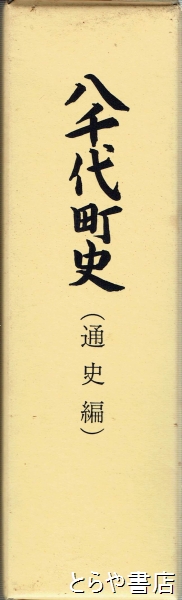 八千代町史
（通史編）
とらや書店